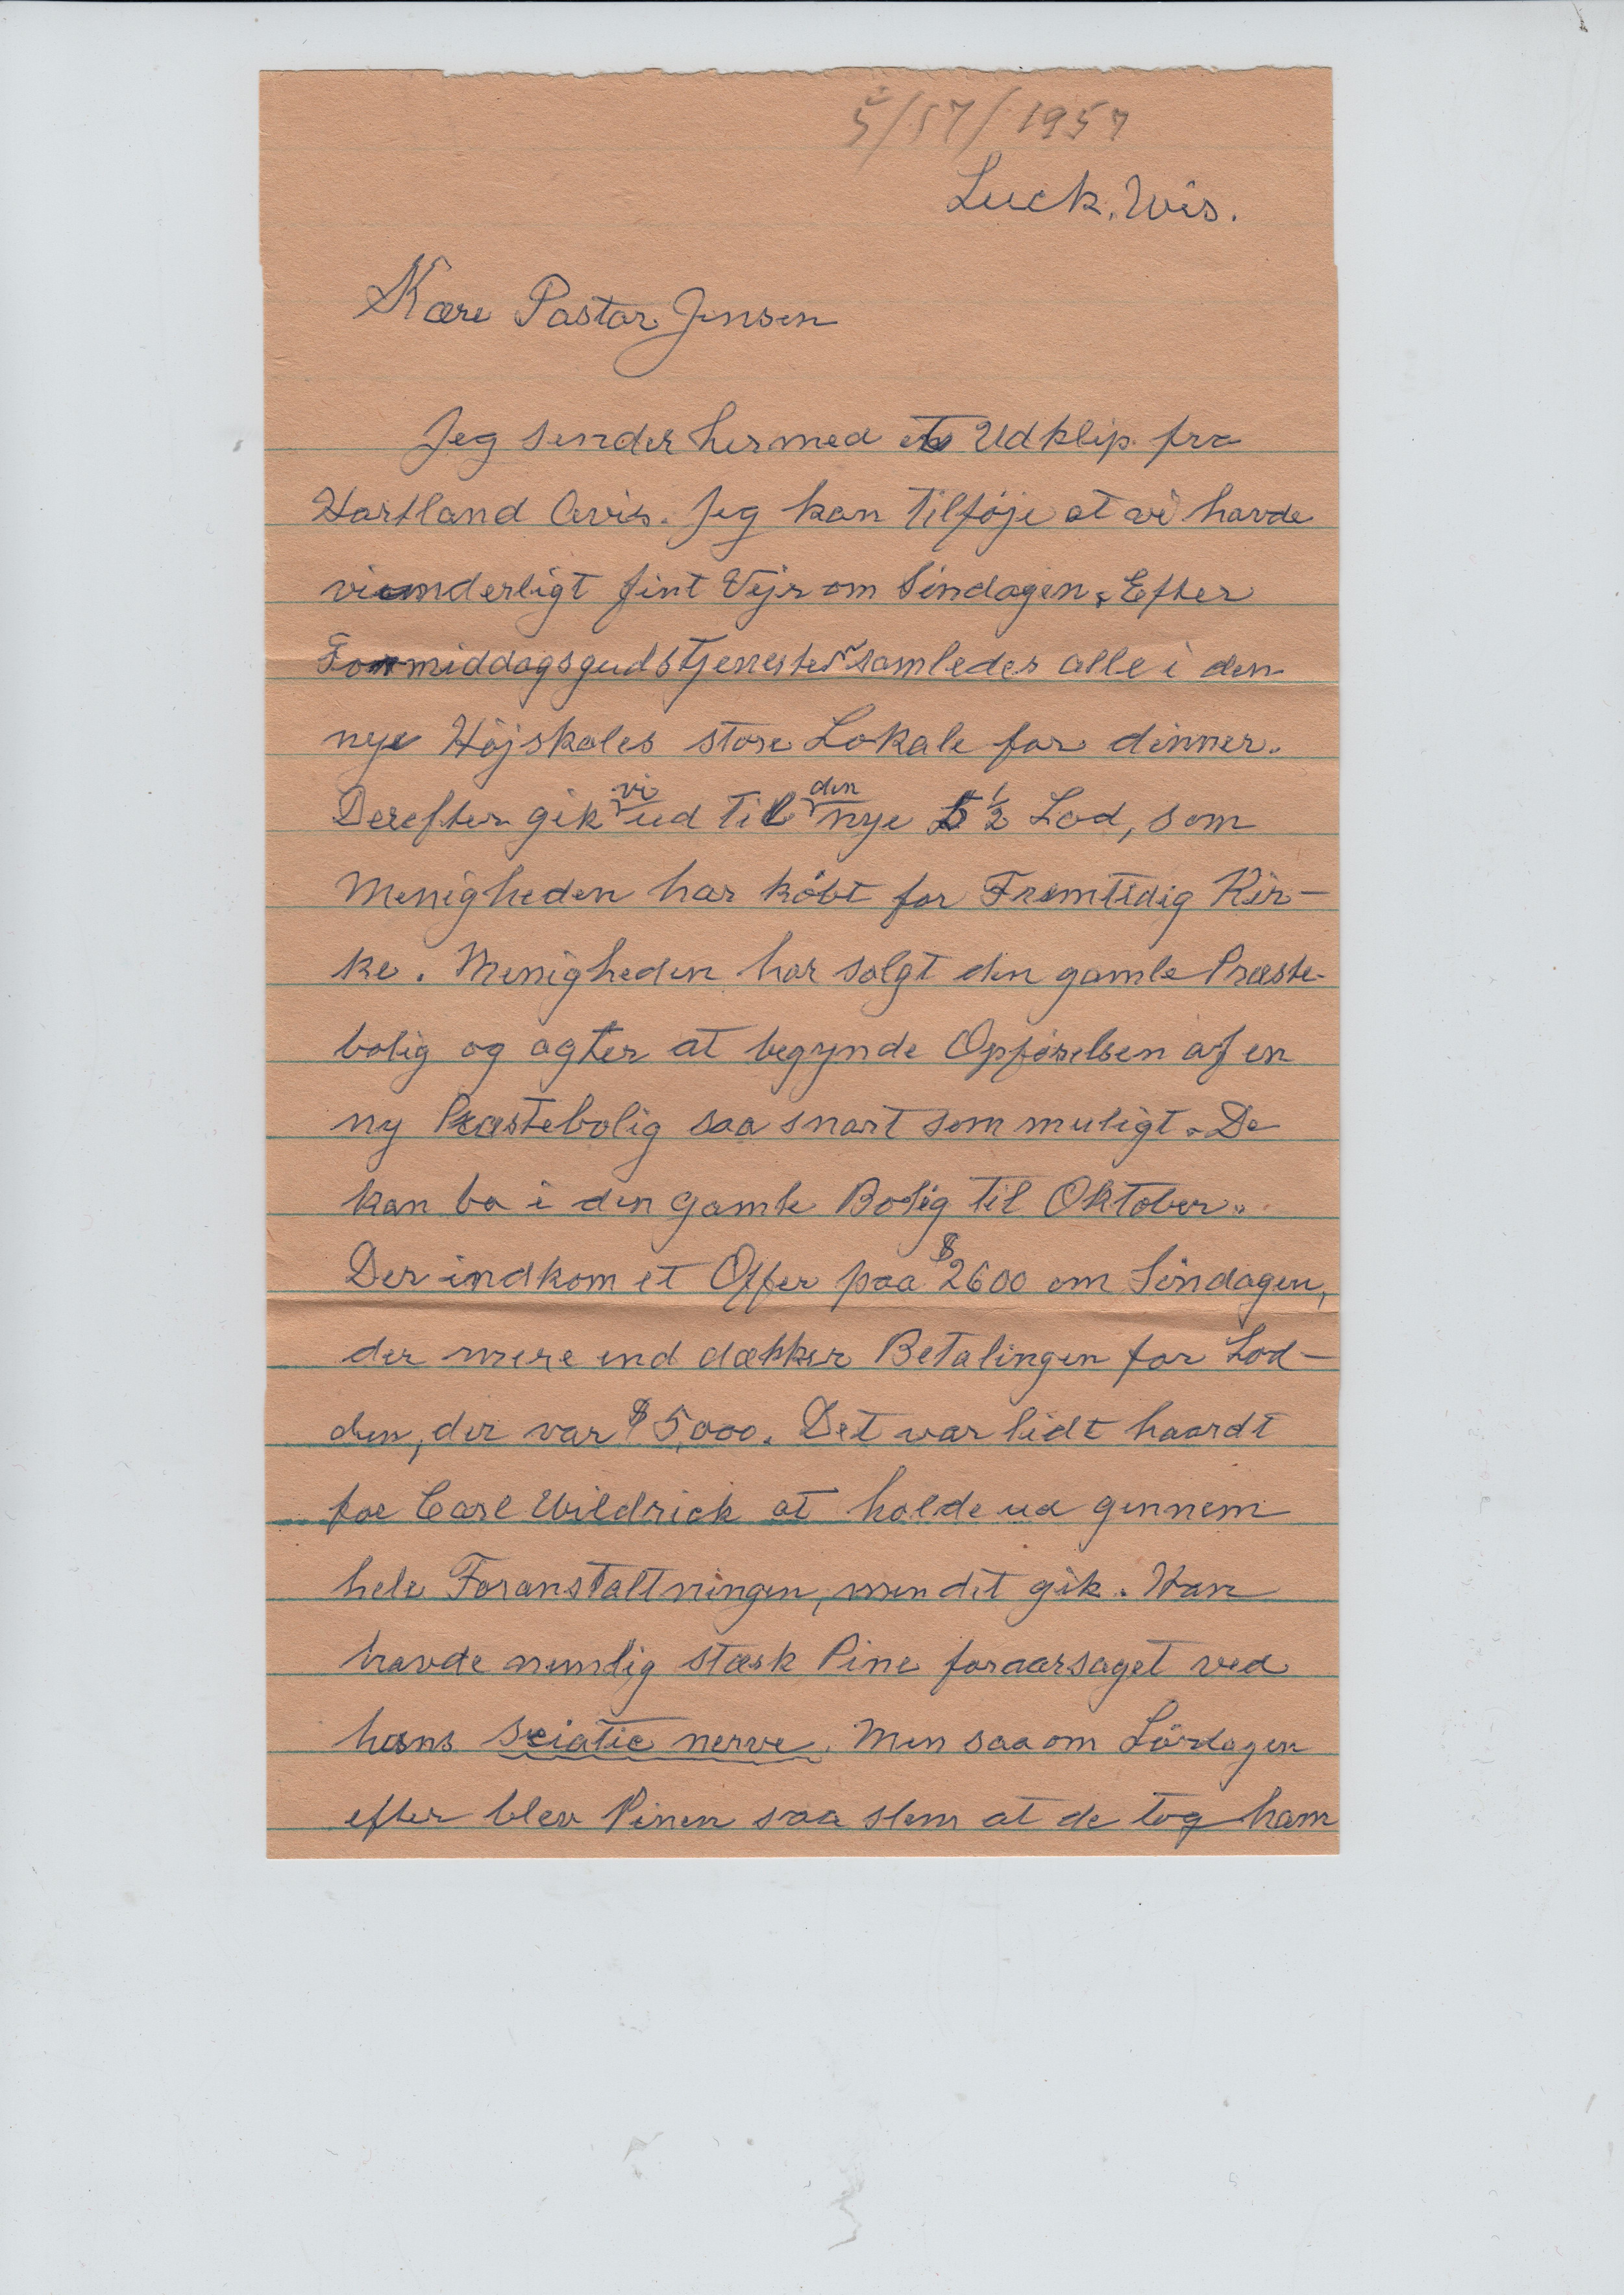 5/57/1957
Luck. Wis.
Kære Pastor Jensen
Jeg sender hermed et Udklip fra
Hartland Avis. Jeg kan tilföje at vi havde
vidunderligt fint Vejr om Söndagen. Efter
Formiddagsgudstjenesten samledes alle i den
nye Höjskoles store Lokale for dinner.
Derefter gik vi ud til den nye 5 1/2 Lod, som
Menigheden har köbt for Fremtidig Kir-
ke. Menigheden har solgt den gamle Præste-
bolig og agter at begynde Opförelsen af en
ny Præstebolig saa snart som muligt. De
kan bo i den gamle Bolig til Oktober.
Der indkom et Offer paa $2600 om Söndagen,
der mere end dækker Betalingen for Lod-
den, der var $5,000. Det var lidt haardt
for Carl Wildrick at holde ud gennem
hele Foranstaltningen, men det gik. Han
havde nemlig stærk Pine foraarsaget ved
hans sciatic nerve. Men saa om Lördagen
efter blev Pinen saa slem at de tog ham